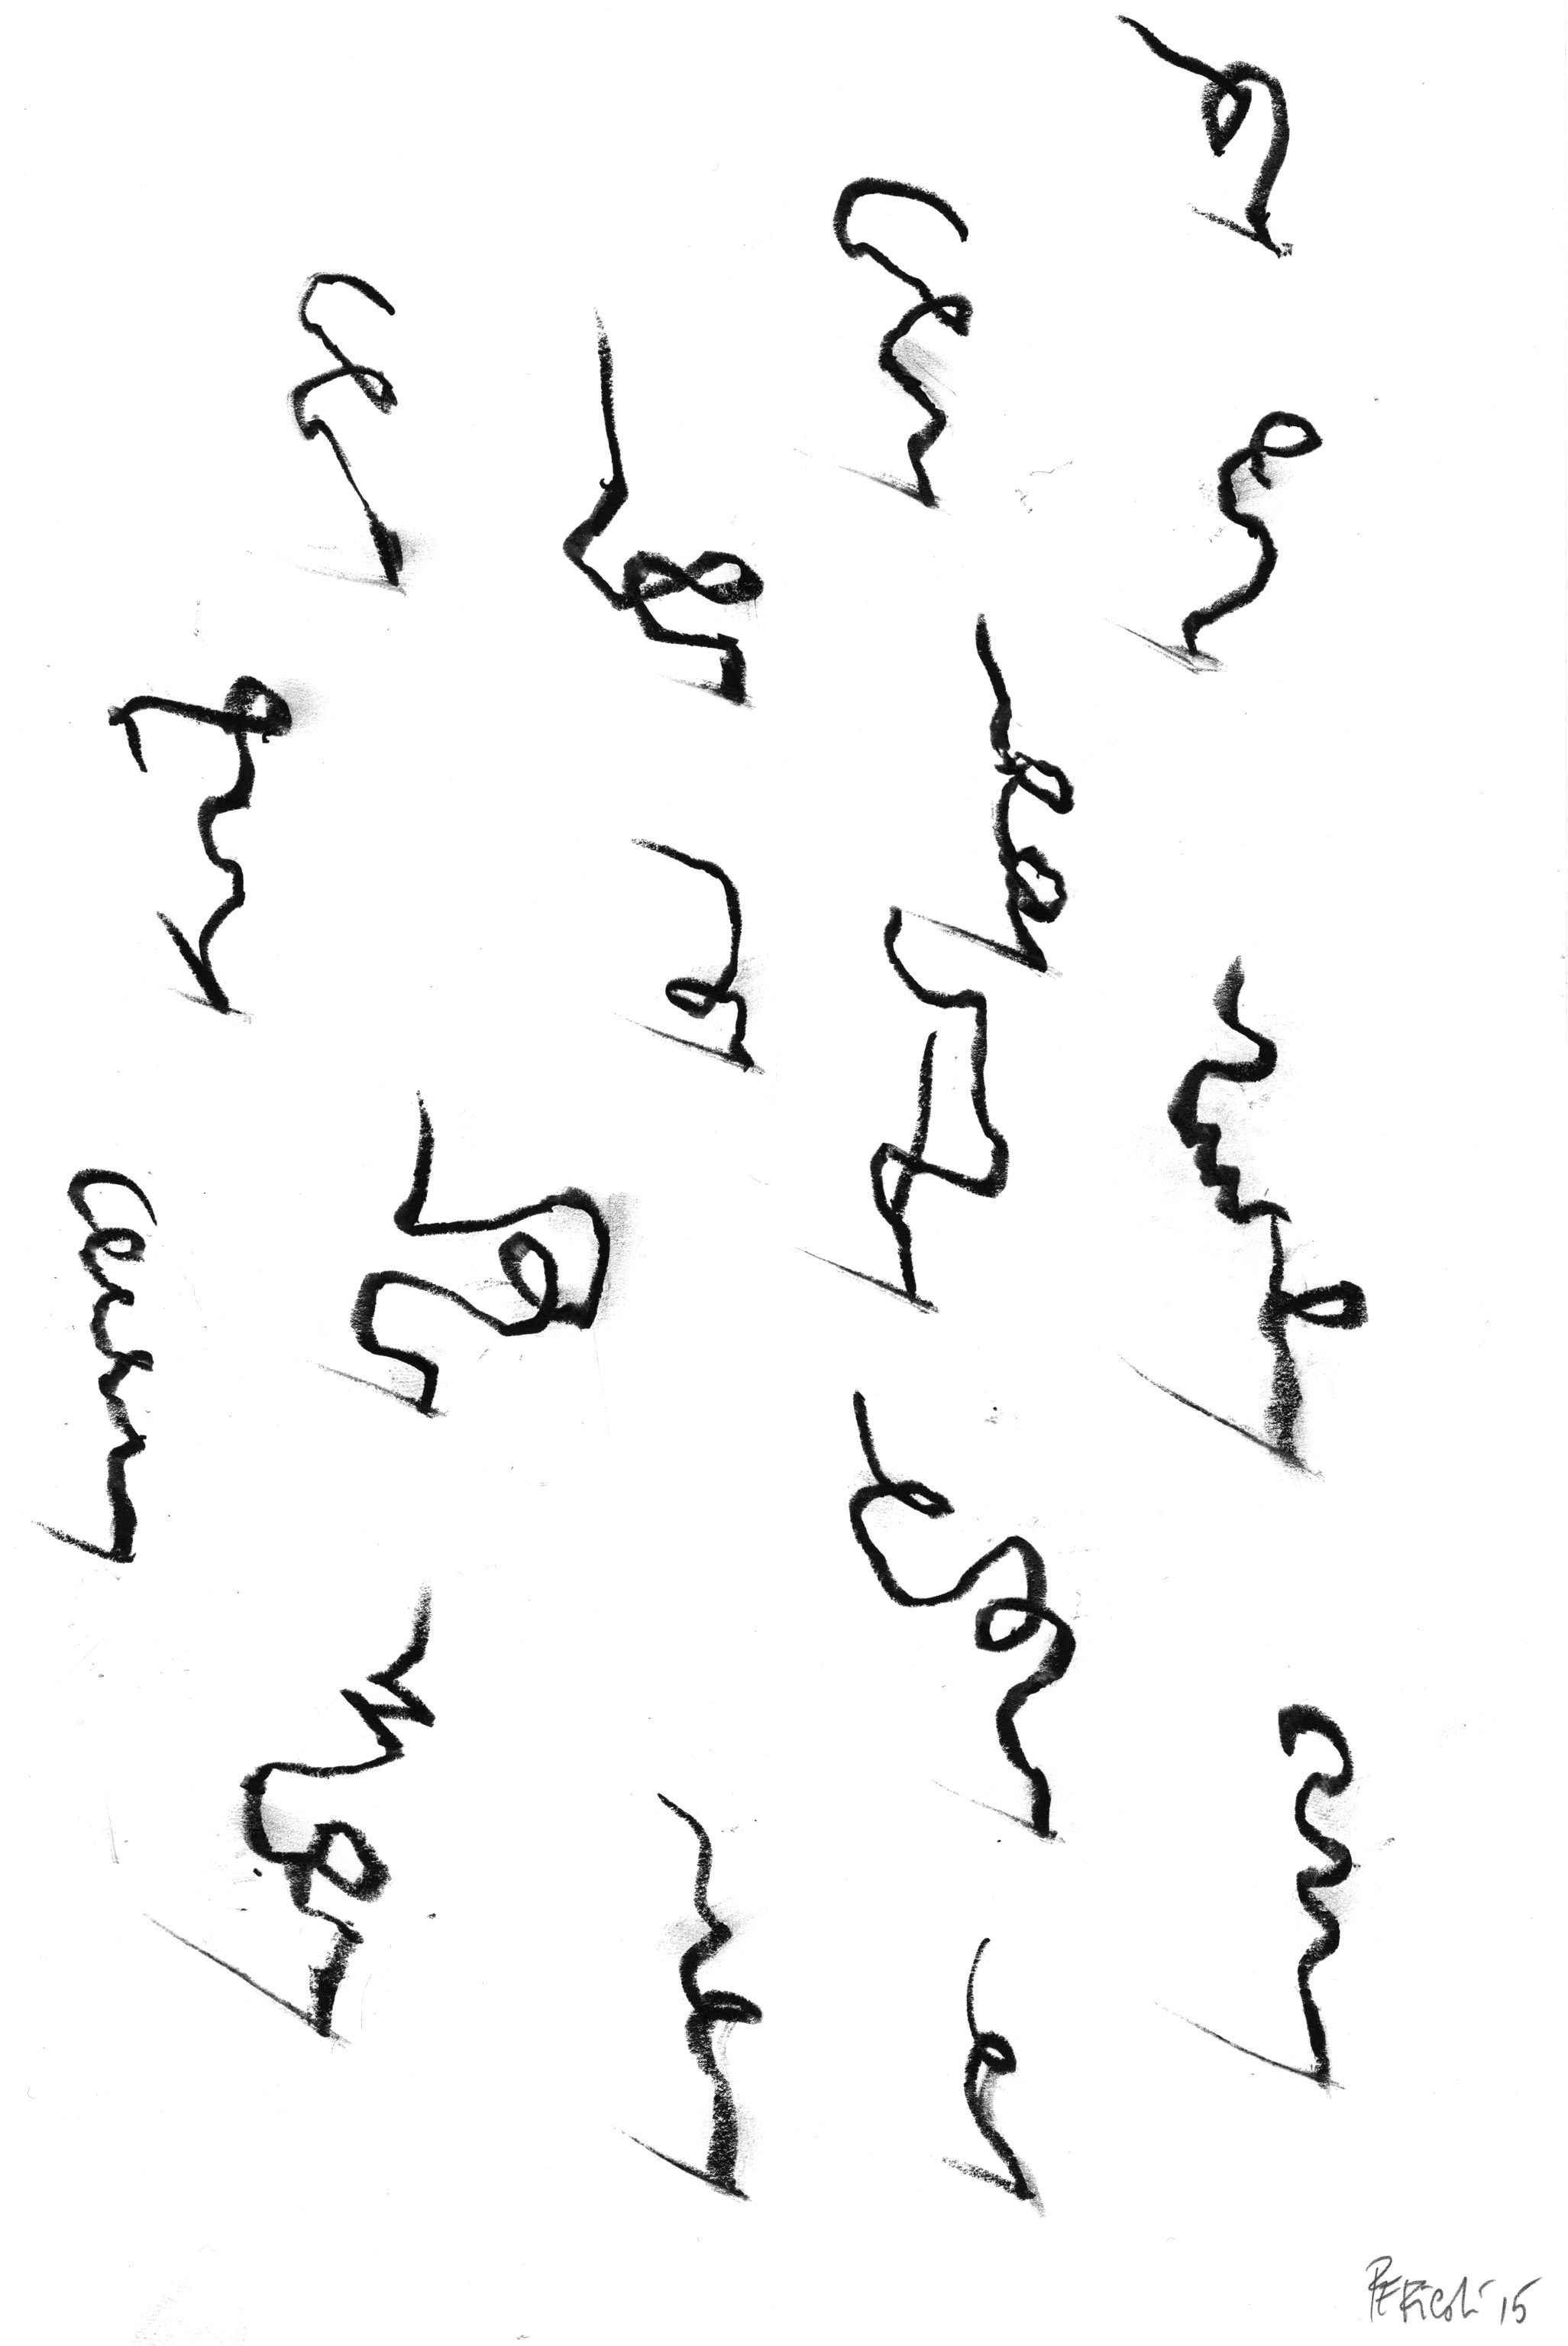 PERicoli '15